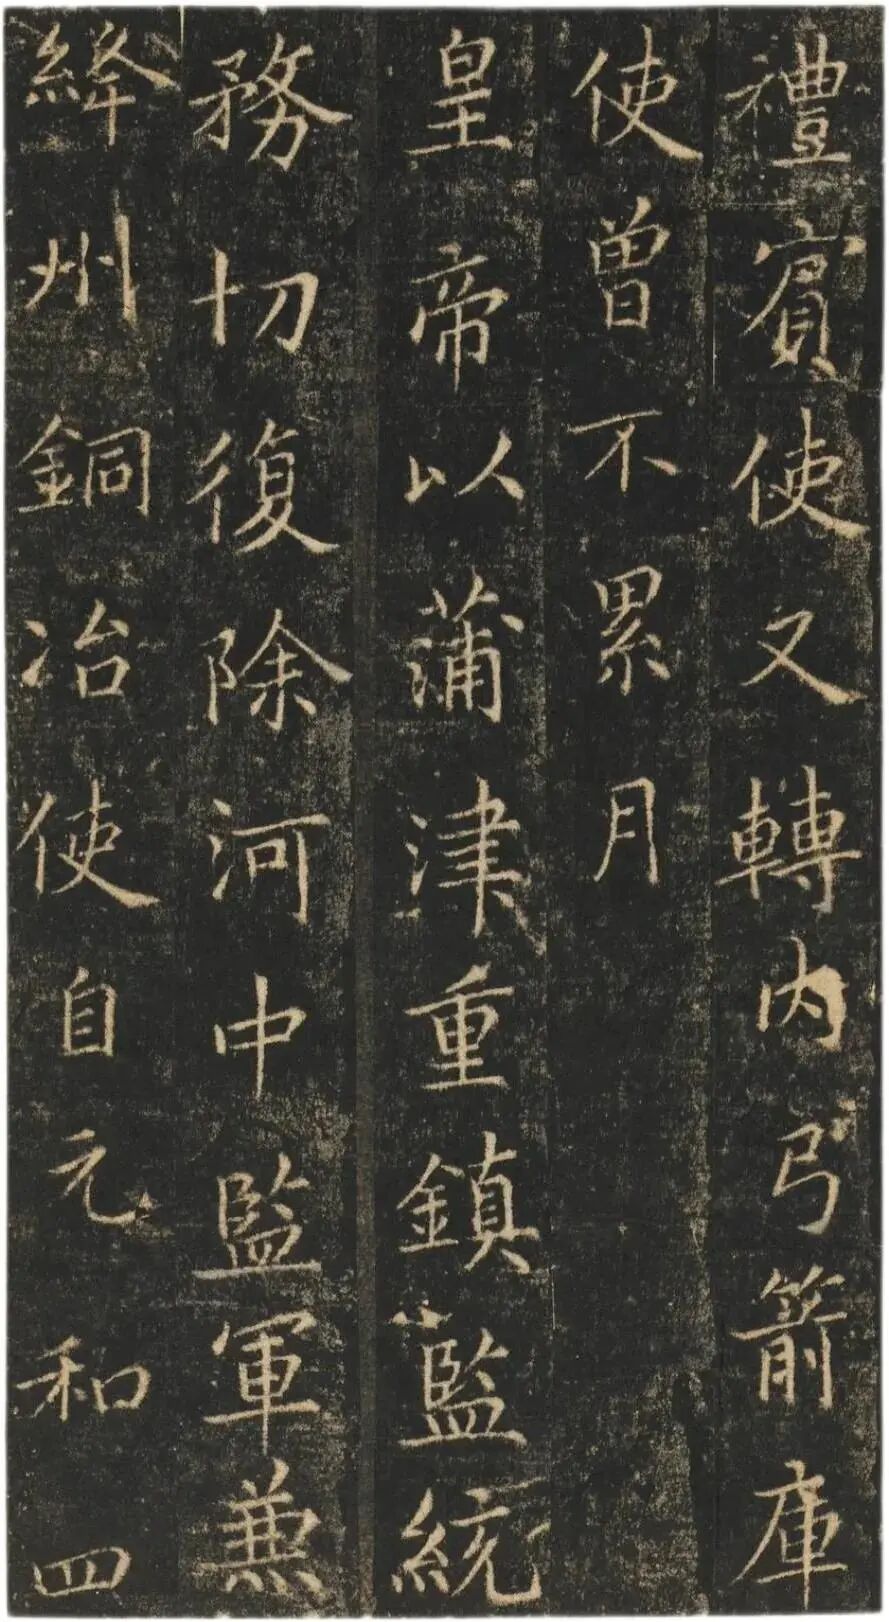 禮賓使又轉內弓箭庫
使曾不累月
皇帝以蒲津重鎮監統
務切復除河中監軍兼
絳州銅冶使自元和四